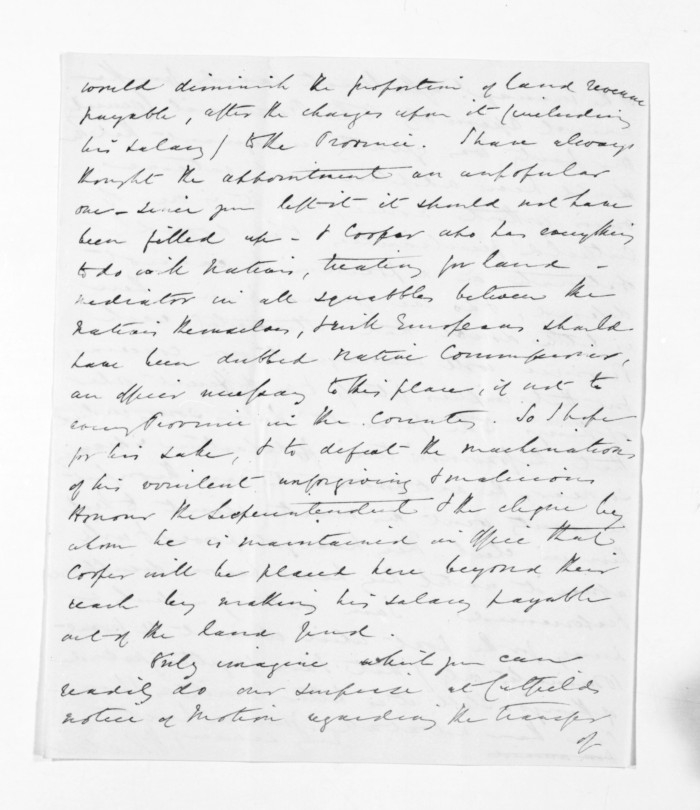 would diminish the proportion of land revenue
payable, after the charges upon it (including
his salary) to the Province. I have always
thought the appointment an unpopular
one - since you left it it should not have
been filled up - & Cooper who has everything
to do with Natives, treating for land -
mediator in all squabbles between the
Natives themselves, & with Europeans should
have been dubbed Native Commissioner,
an officer necessary to this place, if not to
every Province in the Country. So I hope
for his sake, & to defeat the machinations
of his virulent unforgiving & malicious
Honour the Superintendent & the clique by
whom he is maintained in office that
Cooper will be placed here beyond their
reach by making his salary payable
out of the land fund.
Only imagine which you can
readily do our surprise at Cutfield's
notice of Motion regarding the transfer
of